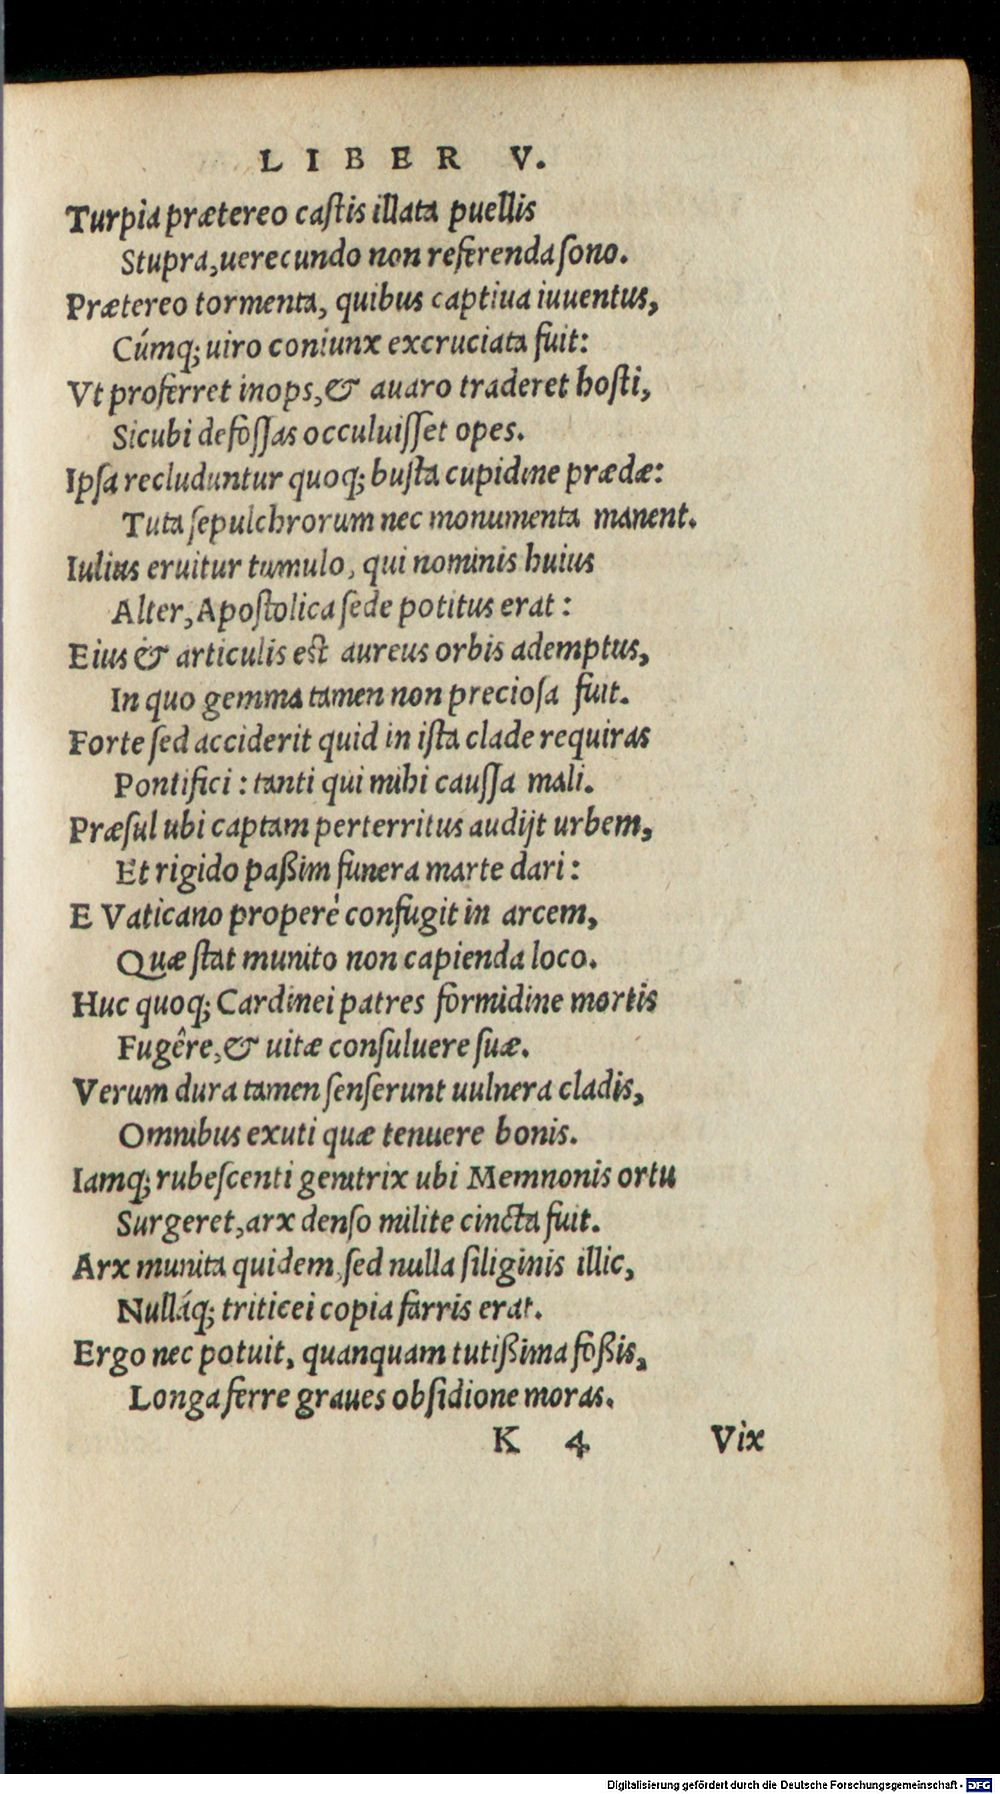 LIBER V.
Turpia prætereo castis illata puellis
Stupra, uerecundo non referenda sono.
Prætereo tormenta, quibus captiua iuuentus,
Cúmq; uiro coniunx excruciata fuit:
Vt proferret inops, & auaro traderet hosti,
Sicubi defossas occuluisset opes.
Ipsa recluduntur quoq; busta cupidine prædæ:
Tuta sepulchrorum nec monumenta manent.
Iulius eruitur tumulo, qui nominis huius
Alter, Apostolica sede potitus erat:
Eius & articulis est aureus orbis ademptus,
In quo gemma tamen non preciosa fuit.
Forte sed acciderit quid in ista clade requiras
Pontifici: tanti qui mihi caussa mali.
Præsul ubi captam perterritus audijt urbem,
Et rigido paßim funera marte dari:
E Vaticano properè confugit in arcem,
Quæ stat munito non capienda loco.
Huc quoq; Cardinei patres formidine mortis
Fugêre, & uitæ consuluere suæ.
Verum dura tamen senserunt uulnera cladis,
Omnibus exuti quæ tenuere bonis.
Iamq; rubescenti genitrix ubi Memnonis ortu
Surgeret, arx denso milite cincta fuit.
Arx munita quidem, sed nulla siliginis illic,
Nulláq; triticei copia farris erat.
Ergo nec potuit, quanquam tutißima foßis,
Longa ferre graues obsidione moras.
K 4 Vix
Digitalisierung gefördert durch die Deutsche Forschungsgemeinschaft - DFG